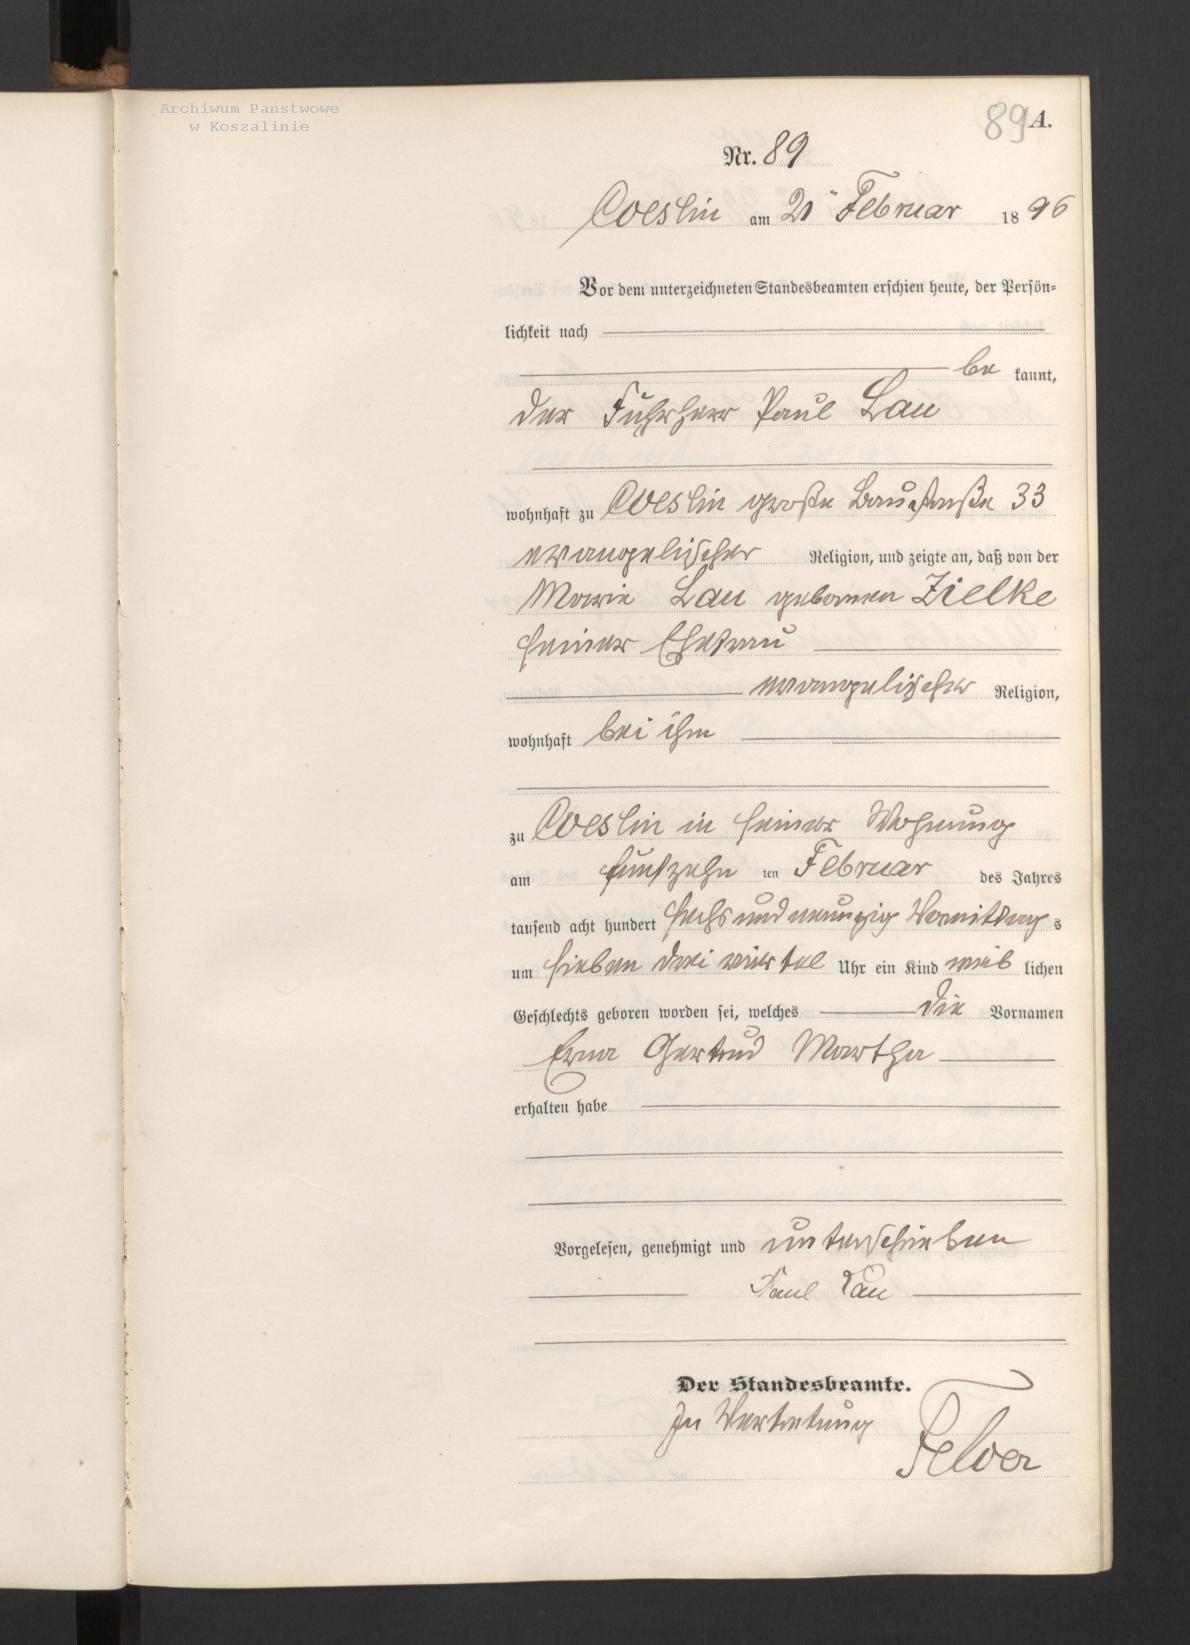 Archiwum Państwowe
w Koszalinie
89 A.
Nr. 89
Coeslin am 21ten Februar 1896
Vor dem unterzeichneten Standesbeamten erschien heute, der Persön-
lichkeit nach
be kannt,
der Fuhrherr Paul Lau
wohnhaft zu Coeslin große Baustraße 33
evangelischer Religion, und zeigte an, daß von der
Marie Lau geborenen Zielke
seiner Ehefrau
evangelischer Religion,
wohnhaft bei ihm
zu Coeslin in seiner Wohnung
am fünfzehn ten Februar des Jahres
tausend acht hundert sechs und neunzig Vormittag s
um sieben drei viertel Uhr ein Kind weib lichen
Geschlechts geboren worden sei, welches die Vornamen
Erna Gertrud Martha
erhalten habe
Vorgelesen, genehmigt und unterschrieben
Paul Lau
Der Standesbeamte.
In Vertretung